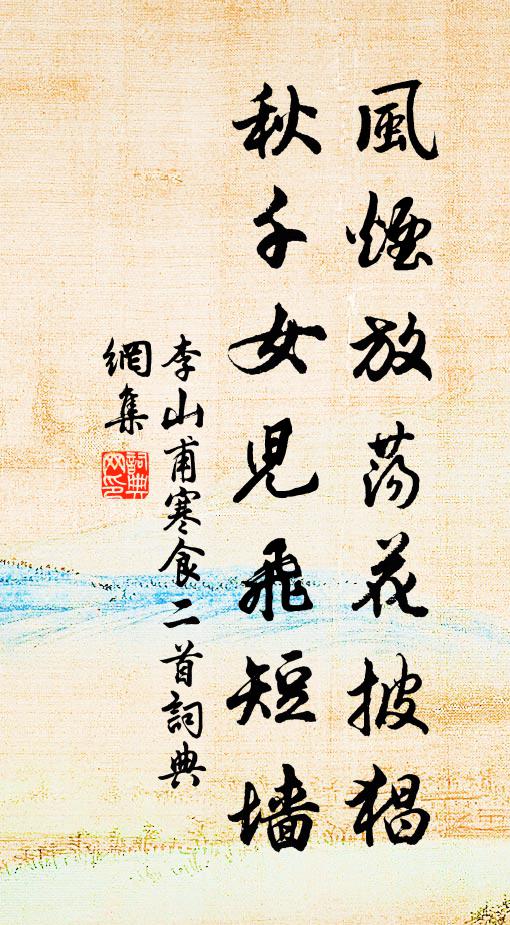 風煙放蕩花披猖
秋千女兒飛短墻
李山甫寒食二首詞典
網集
詞典网印